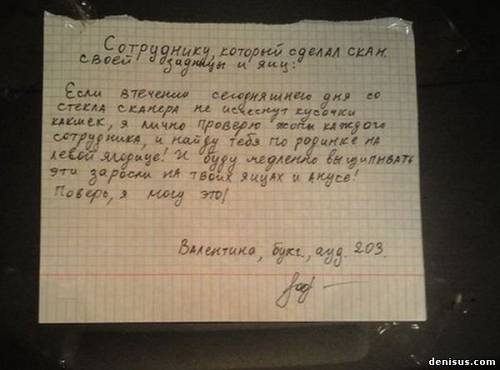 Сотруднику, который сделал скан
своей задницы и яиц:
Если втечении сегодняшнего дня со
стекла сканера не исчезнут кусочки
какшек, я лично проверю жопы каждого
сотрудника, и найду тебя по родинке на
левой ягодице! И буду медленно выщипывать
эти заросли на твоих яйцах и анусе!
Поверь, я могу это!
Валентина, бухг., ауд. 203.
denisus.com